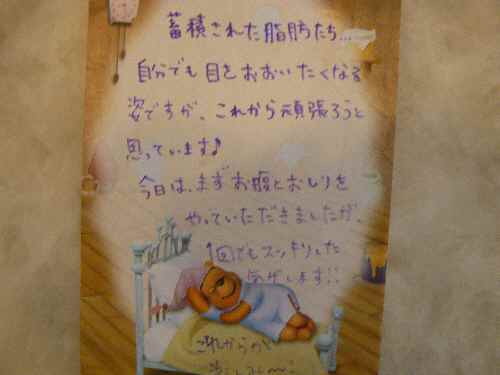 蓄積された脂肪たち...
自分でも目をおおいたくなる
姿ですが、これから頑張ろうと
思っています♪
今日は、まずお腹とおしりを
やっていただきましたが、
1回でもスッキリした
気がします!!
これからが
楽しみ〜